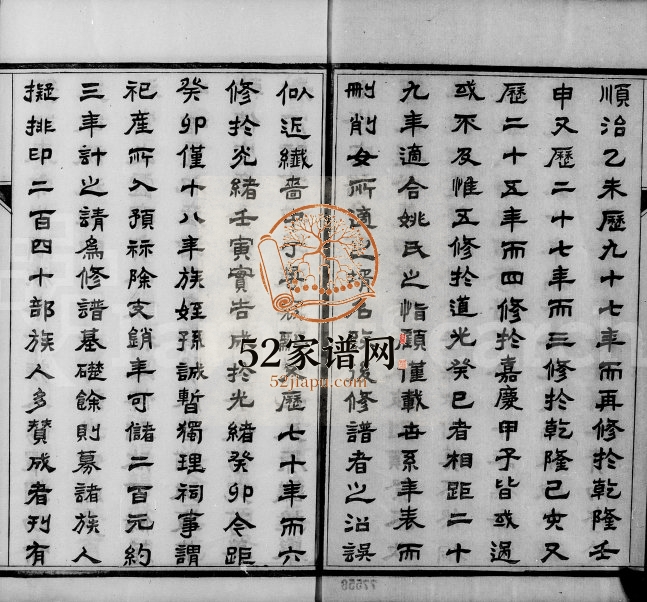 順治乙未歷九十七年而再修於乾隆壬
申又歷二十七年而三修於乾隆己亥又
歷二十五年而四修於嘉慶甲子皆或過
或不及惟五修於道光癸巳者相距二十
九年適合姚氏之恉顧僅載世系年表而
刪削女所適之壻名致後修譜者之沿誤
似近纖嗇中丁 又歷七十年而六
修於光緒壬寅實告成於光緒癸卯今距
癸卯僅十八年族姪孫誠暫獨理祠事謂
祀產所入預祘除支銷年可儲二百元約
三年計之請為修譜基礎餘則募諸族人
擬排印二百四十部族人多贊成者刊有
52家谱网
52jiapu.com
77558